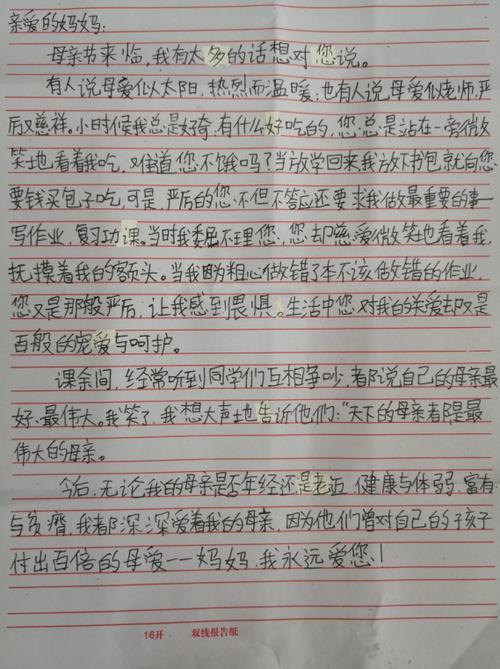 亲爱的妈妈:
母亲节来临,我有太多的话想对您说。
有人说母爱似太阳,热烈而温暖;也有人说母爱似老师,严
厉又慈祥。小时候我总是好奇,有什么好吃的,您总是站在一旁微
笑地看着我吃,难道您不饿吗?当放学回来,我放下书包就向您
要钱买包子吃,可是,严厉的您不但不答应还要求我做最重要的事一
写作业,复习功课。当时我委屈不理您,您却慈爱微笑地看着我,
抚摸着我的额头。当我因为粗心做错了本不该做错的作业,
您又是那般严厉,让我感到畏惧。生活中您对我的关爱却又是
百般的宠爱与呵护。
课余间,经常听到同学们互相争吵,都说自己的母亲最
好,最伟大。我笑了,我想大声地告诉他们:“天下的母亲都是最
伟大的母亲。
今后,无论我的母亲是否年经还是老,健康与体弱,富有
与贫瘠,我都深深爱着我的母亲,因为他们曾对自己的孩子
付出百倍的母爱——妈妈,我永远爱您!
16开 双线报告纸